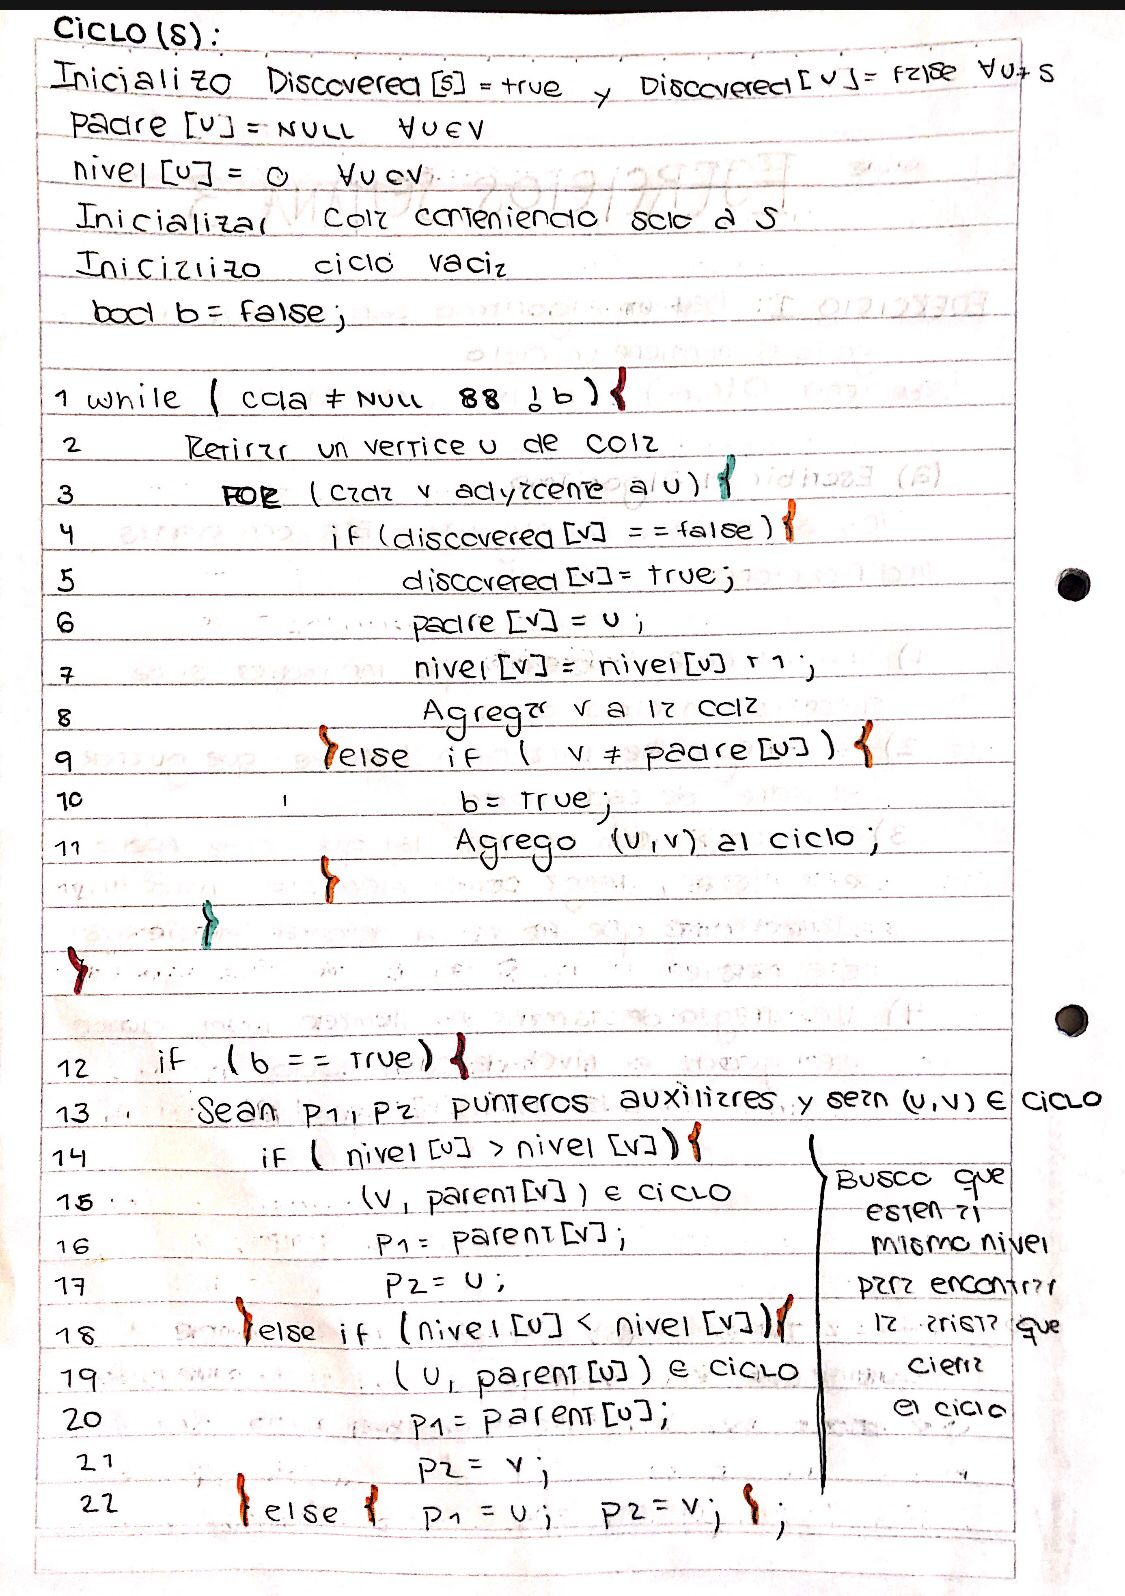 CICLO (S):
Inicializo Discovered [s] = true y Discovered [v] = false ∀v≠s
padre [u] = NULL ∀u∈V
nivel [u] = 0 ∀u∈V
Inicializar cola conteniendo solo a S
Inicializo ciclo vacia
bool b = false;
1 while ( cola ≠ NULL && !b) {
2 Retirar un vertice u de cola
3 FOR (cada v adyacente a u) {
4 if (discovered [v] == false) {
5 discovered [v] = true;
6 padre [v] = u;
7 nivel [v] = nivel [u] + 1;
8 Agregar v a la cola
9 } else if ( v ≠ padre [u] ) {
10 b = true;
11 Agrego (u,v) al ciclo;
}
}
}
12 if (b == true) {
13 Sean p1, p2 punteros auxiliares y sean (u,v) ∈ CICLO
14 if ( nivel [u] > nivel [v] ) {
15 (v, parent [v] ) ∈ CICLO
16 p1 = parent [v];
17 p2 = u;
18 } else if (nivel [u] < nivel [v] ) {
19 (u, parent [u] ) ∈ CICLO
20 p1 = parent [u];
21 p2 = v;
22 } else { p1 = u; p2 = v; } ;
Busco que
esten al
mismo nivel
para encontrar
la arista que
cierra
el ciclo